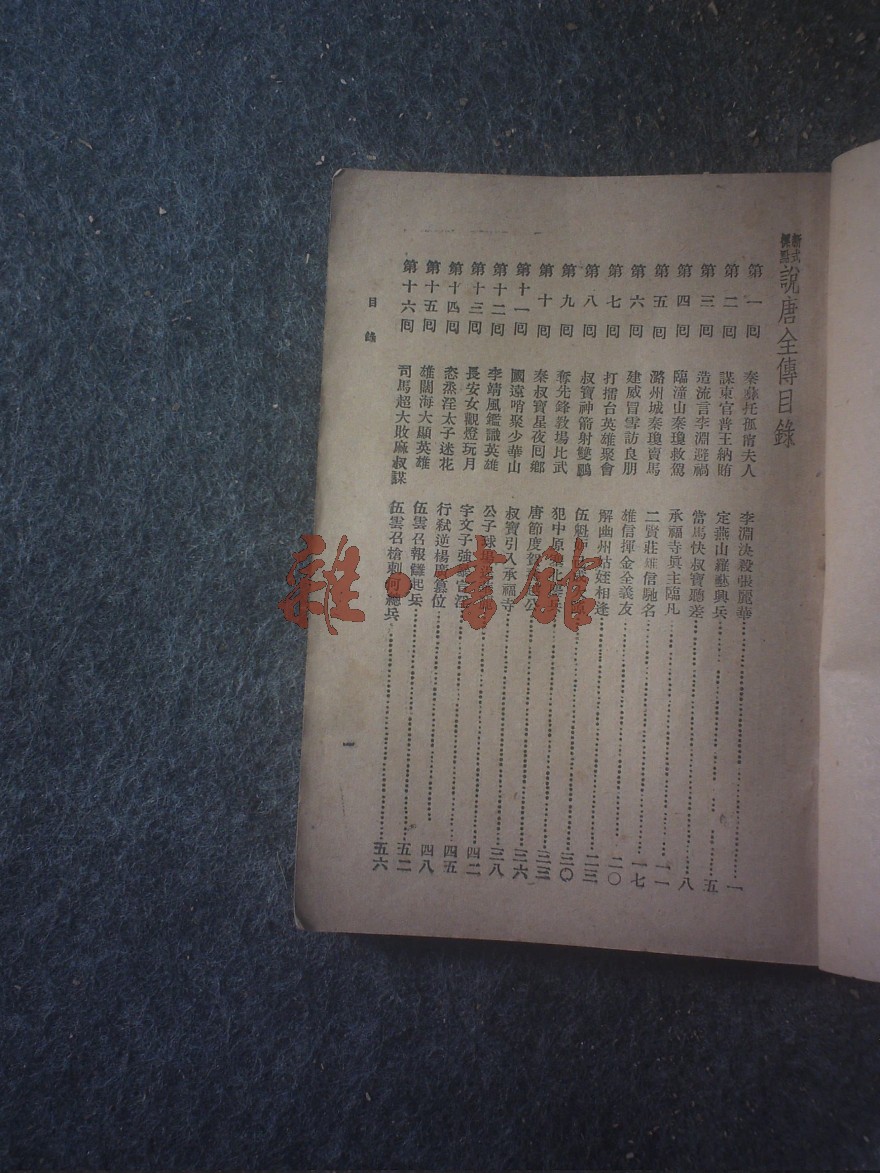 新式標點 說唐全傳目錄
第一囘 秦彝托孤甯夫人 李淵決殺張麗華 一
第二囘 謀東宮普王納賄 定燕山羅藝興兵 五
第三囘 造流言李淵避禍 當馬快叔寶聽差 八
第四囘 臨潼山秦瓊救駕 承福寺眞主臨凡 一一
第五囘 潞州城秦瓊賣馬 二賢莊雄信馳名 一七
第六囘 建威冒雪訪良朋 雄信揮金全義友 二〇
第七囘 打擂台英雄聚會 解幽州姑姪相逢 二三
第八囘 叔寶神箭射雙鵰 伍魁 三〇
第九囘 奪先鋒敎場比武 犯中原 兵 三三
第十囘 秦叔寶星夜囘鄉 唐節度賀 公 三六
第十一囘 國遠哨聚少華山 叔寶引入承福寺 三八
第十二囘 李靖風鑑識英雄 公子球 四二
第十三囘 長安女觀燈玩月 宇文子強 淫 四五
第十四囘 恣烝淫太子迷花 行弒逆楊廣篡位 四八
第十五囘 雄闊海大顯英雄 伍雲召報讎起兵 五二
第十六囘 司馬超大敗麻叔謀 伍雲召槍刺何總兵 五六
目錄
一
雜·書館